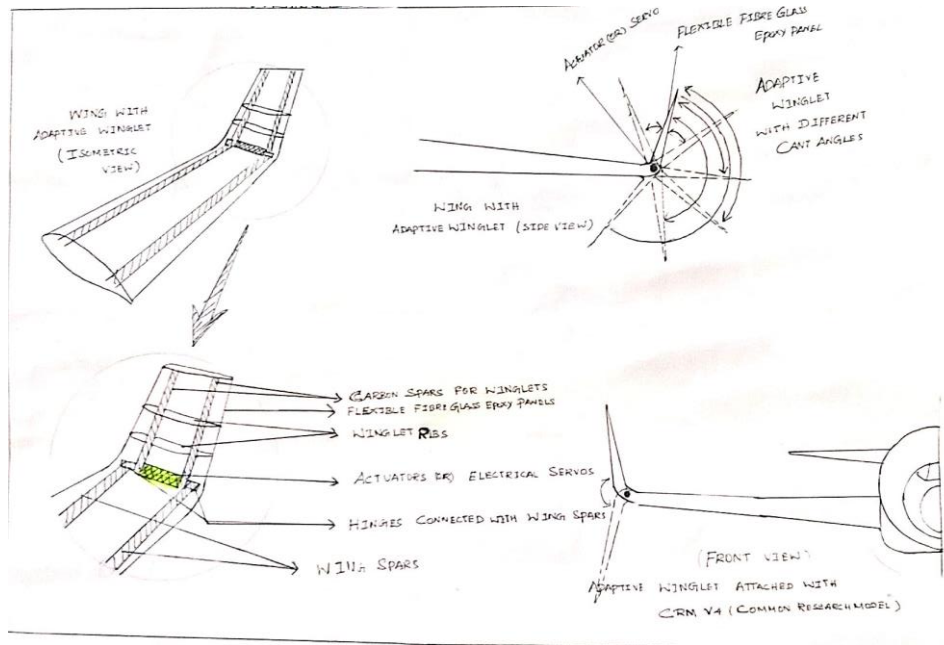 WING WITH
ADAPTIVE WINGLET
(ISOMETRIC
VIEW)
ACTUATOR (OR) SERVO
FLEXIBLE FIBRE GLASS
EPOXY PANEL
ADAPTIVE
WINGLET
WITH DIFFERENT
CANT ANGLES
WING WITH
ADAPTIVE WINGLET (SIDE VIEW)
CARBON SPARS FOR WINGLETS
FLEXIBLE FIBRE GLASS EPOXY PANELS
WINGLET RIBS
ACTUATORS (OR) ELECTRICAL SERVOS
HINGES CONNECTED WITH WING SPARS
WING SPARS
(FRONT VIEW)
ADAPTIVE WINGLET ATTACHED WITH
CRM V4 (COMMON RESEARCH MODEL)